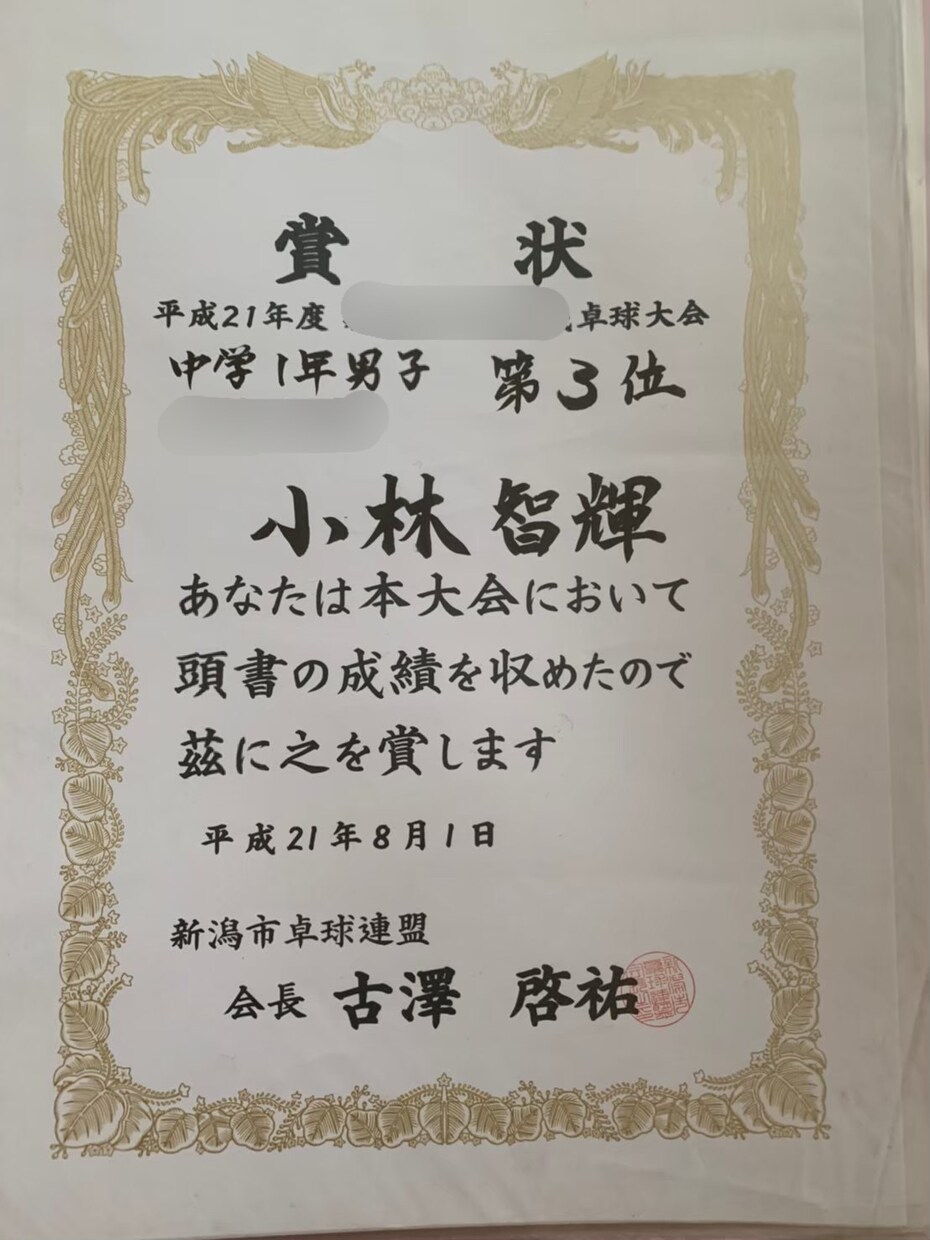 賞状
平成21年度 卓球大会
中学1年男子 第3位
小林智輝
あなたは本大会において
頭書の成績を収めたので
茲に之を賞します
平成21年8月1日
新潟市卓球連盟
会長 古澤 啓祐